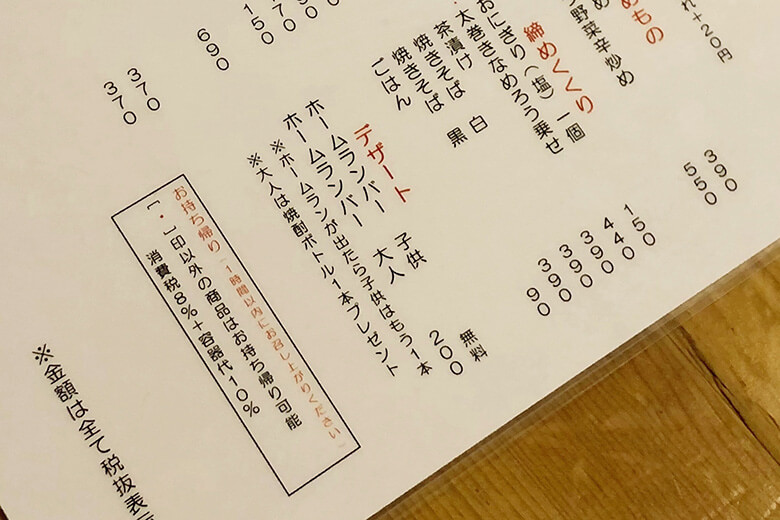 れ+20円
めもの
め 390
野菜辛炒め 550
締めくくり
おにぎり(塩)一個 150
太巻きなめろう乗せ 440
茶漬け 390
焼きそば 白 390
焼きそば 黒 390
ごはん 90
デザート
ホームランバー 子供 無料
ホームランバー 大人 200
※ホームランが出たら子供はもう1本
※大人は焼酎ボトル1本プレゼント
150
690
370
370
お持ち帰り「1時間以内にお召し上がりください」
「・」印以外の商品はお持ち帰り可能
消費税8%+容器代10%
※金額は全て税抜表